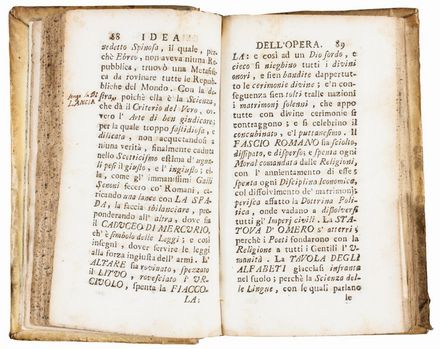 88 IDEA
nedetto Spinosa, il quale, per-
chè Ebreo, non aveva niuna Re-
pubblica, truovò una Metafisi-
ca da rovinare tutte le Repub-
bliche del Mondo. Con la de-
stra, poichè ella è la Scienza,
che dà il Criterio del Vero, ov-
vero l' Arte di ben giudicare;
per la quale troppo fastidiosa, e
dilicata, non acquetandosi a
niuna verità, finalmente caduta
nello Scetticismo estima d' ugua-
li pesi il giusto, e l' ingiusto; el-
la, come gl' immanissimi Galli
Senoni fecero co' Romani, ca-
ricando una lance con LA SPA-
DA, la faccia sbilanciare, pre-
ponderando all' altra, dove sia
il CADUCEO DI MERCURIO,
ch' è simbolo delle Leggi; e così
insegni, dover servire le leggi
alla forza ingiusta dell' armi. L'
ALTARE sia rovinato, spezzato
il LITUO, rovesciato l' UR-
CIUOLO, spenta la FIACCO-
LA:
LANCIA
DELL'OPERA. 89
LA: e così ad un Dio sordo, e
cieco si nieghino tutti i divini
onori, e sien bandite dappertut-
to le cerimonie divine; e 'n con-
seguenza sien tolti tralle nazioni
i matrimonj solenni, che appo
tutte con divine cerimonie si
contraggono; e si celebrino il
concubinato, e 'l puttanesimo. Il
FASCIO ROMANO sia sciolto,
dissipato, e disperso; e spenta ogni
Moral comandata dalle Religioni,
con l' annientamento di esse;
spenta ogni Disciplina Iconomica,
col dissolvimento de' matrimonj;
perisca affatto la Dottrina Poli-
tica, onde vadano a dissolversi
tutti gl' Imperj civili. La STA-
TOVA D' OMERO s' atterri;
perchè i Poeti fondarono con la
Religione a tutti i Gentili l' U-
manità. La TAVOLA DEGLI
ALFABETI giacciasi infranta
nel suolo; perchè la Scienza del-
le Lingue, con le quali parlano
le